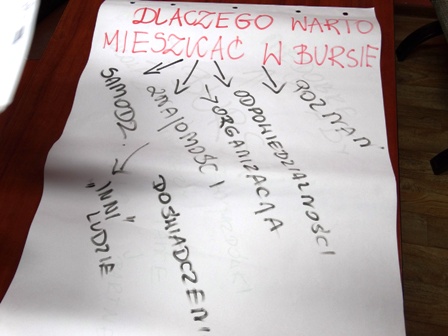 DLACZEGO WARTO
MIESZKAĆ W BURSIE
SAMODZ.
"INNI"
LUDZIE
ZNAJOMOŚCI
DOŚWIADCZENI
→ ORGANIZACJA
ODPOWIEDZIALNOŚCI
POZNAŃ